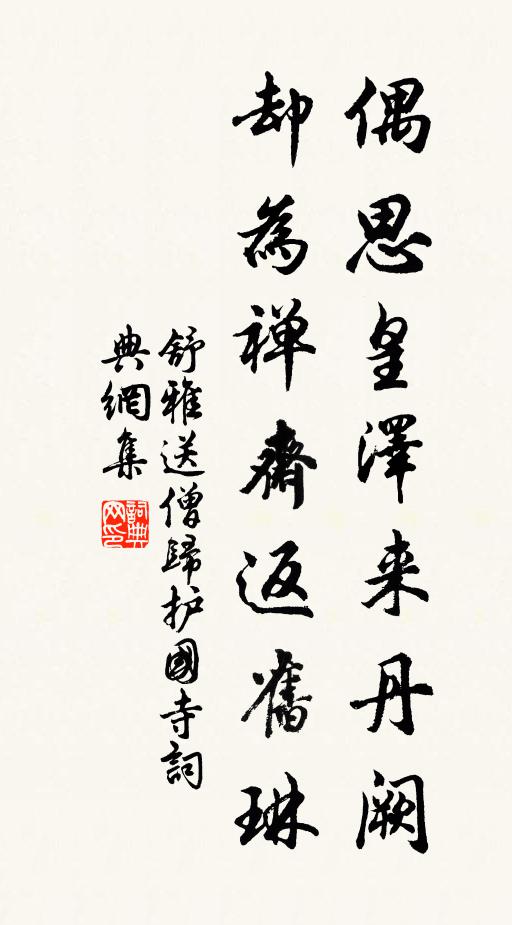 偶思皇澤来丹阙
却為禅齋返舊琳
舒雅送僧歸护國寺詞
典網集
詞典网印